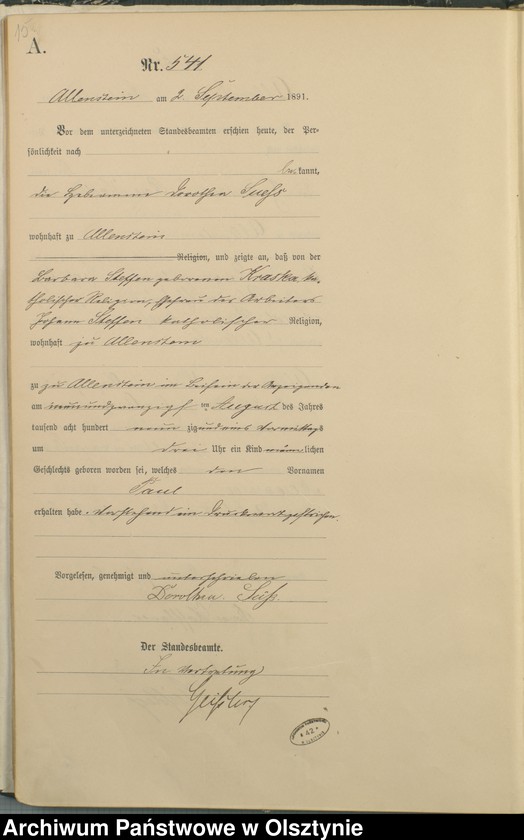 A.
Nr. 541.
Allenstein am 2. September 1891.
Vor dem unterzeichneten Standesbeamten erschien heute, der Per-
sönlichkeit nach
be kannt,
die Hebamme Dorothea Suess
wohnhaft zu Allenstein
Religion, und zeigte an, daß von der
Barbara Steffen geborenen Kraska ka-
tholischer Religion, Ehefrau des Arbeiters
Johann Steffen katholischer Religion,
wohnhaft zu Allenstein
zu zu Allenstein im Beisein der Anzeigenden
am neunundzwanzigsten August des Jahres
tausend acht hundert neunzig und eins Vormittags
um drei Uhr ein Kind männlichen
Geschlechts geboren worden sei, welches den Vornamen
Paul
erhalten habe. Vorstehend ein Druckwort gestrichen.
Vorgelesen, genehmigt und unterschrieben
Dorothea
Der Standesbeamte.
In Vertretung
42
Archiwum Państwowe w Olsztynie